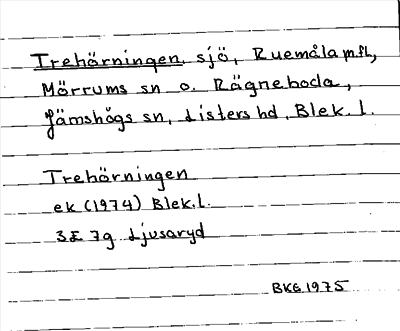 Trehörningen, sjö, Ruemåla m.fl.,
Mörrums sn o. Rägneboda,
Jämshögs sn, Listers hd, Blek. l.
Trehörningen
ek (1974) Blek. l.
3E 7g Ljusaryd
BKG 1975